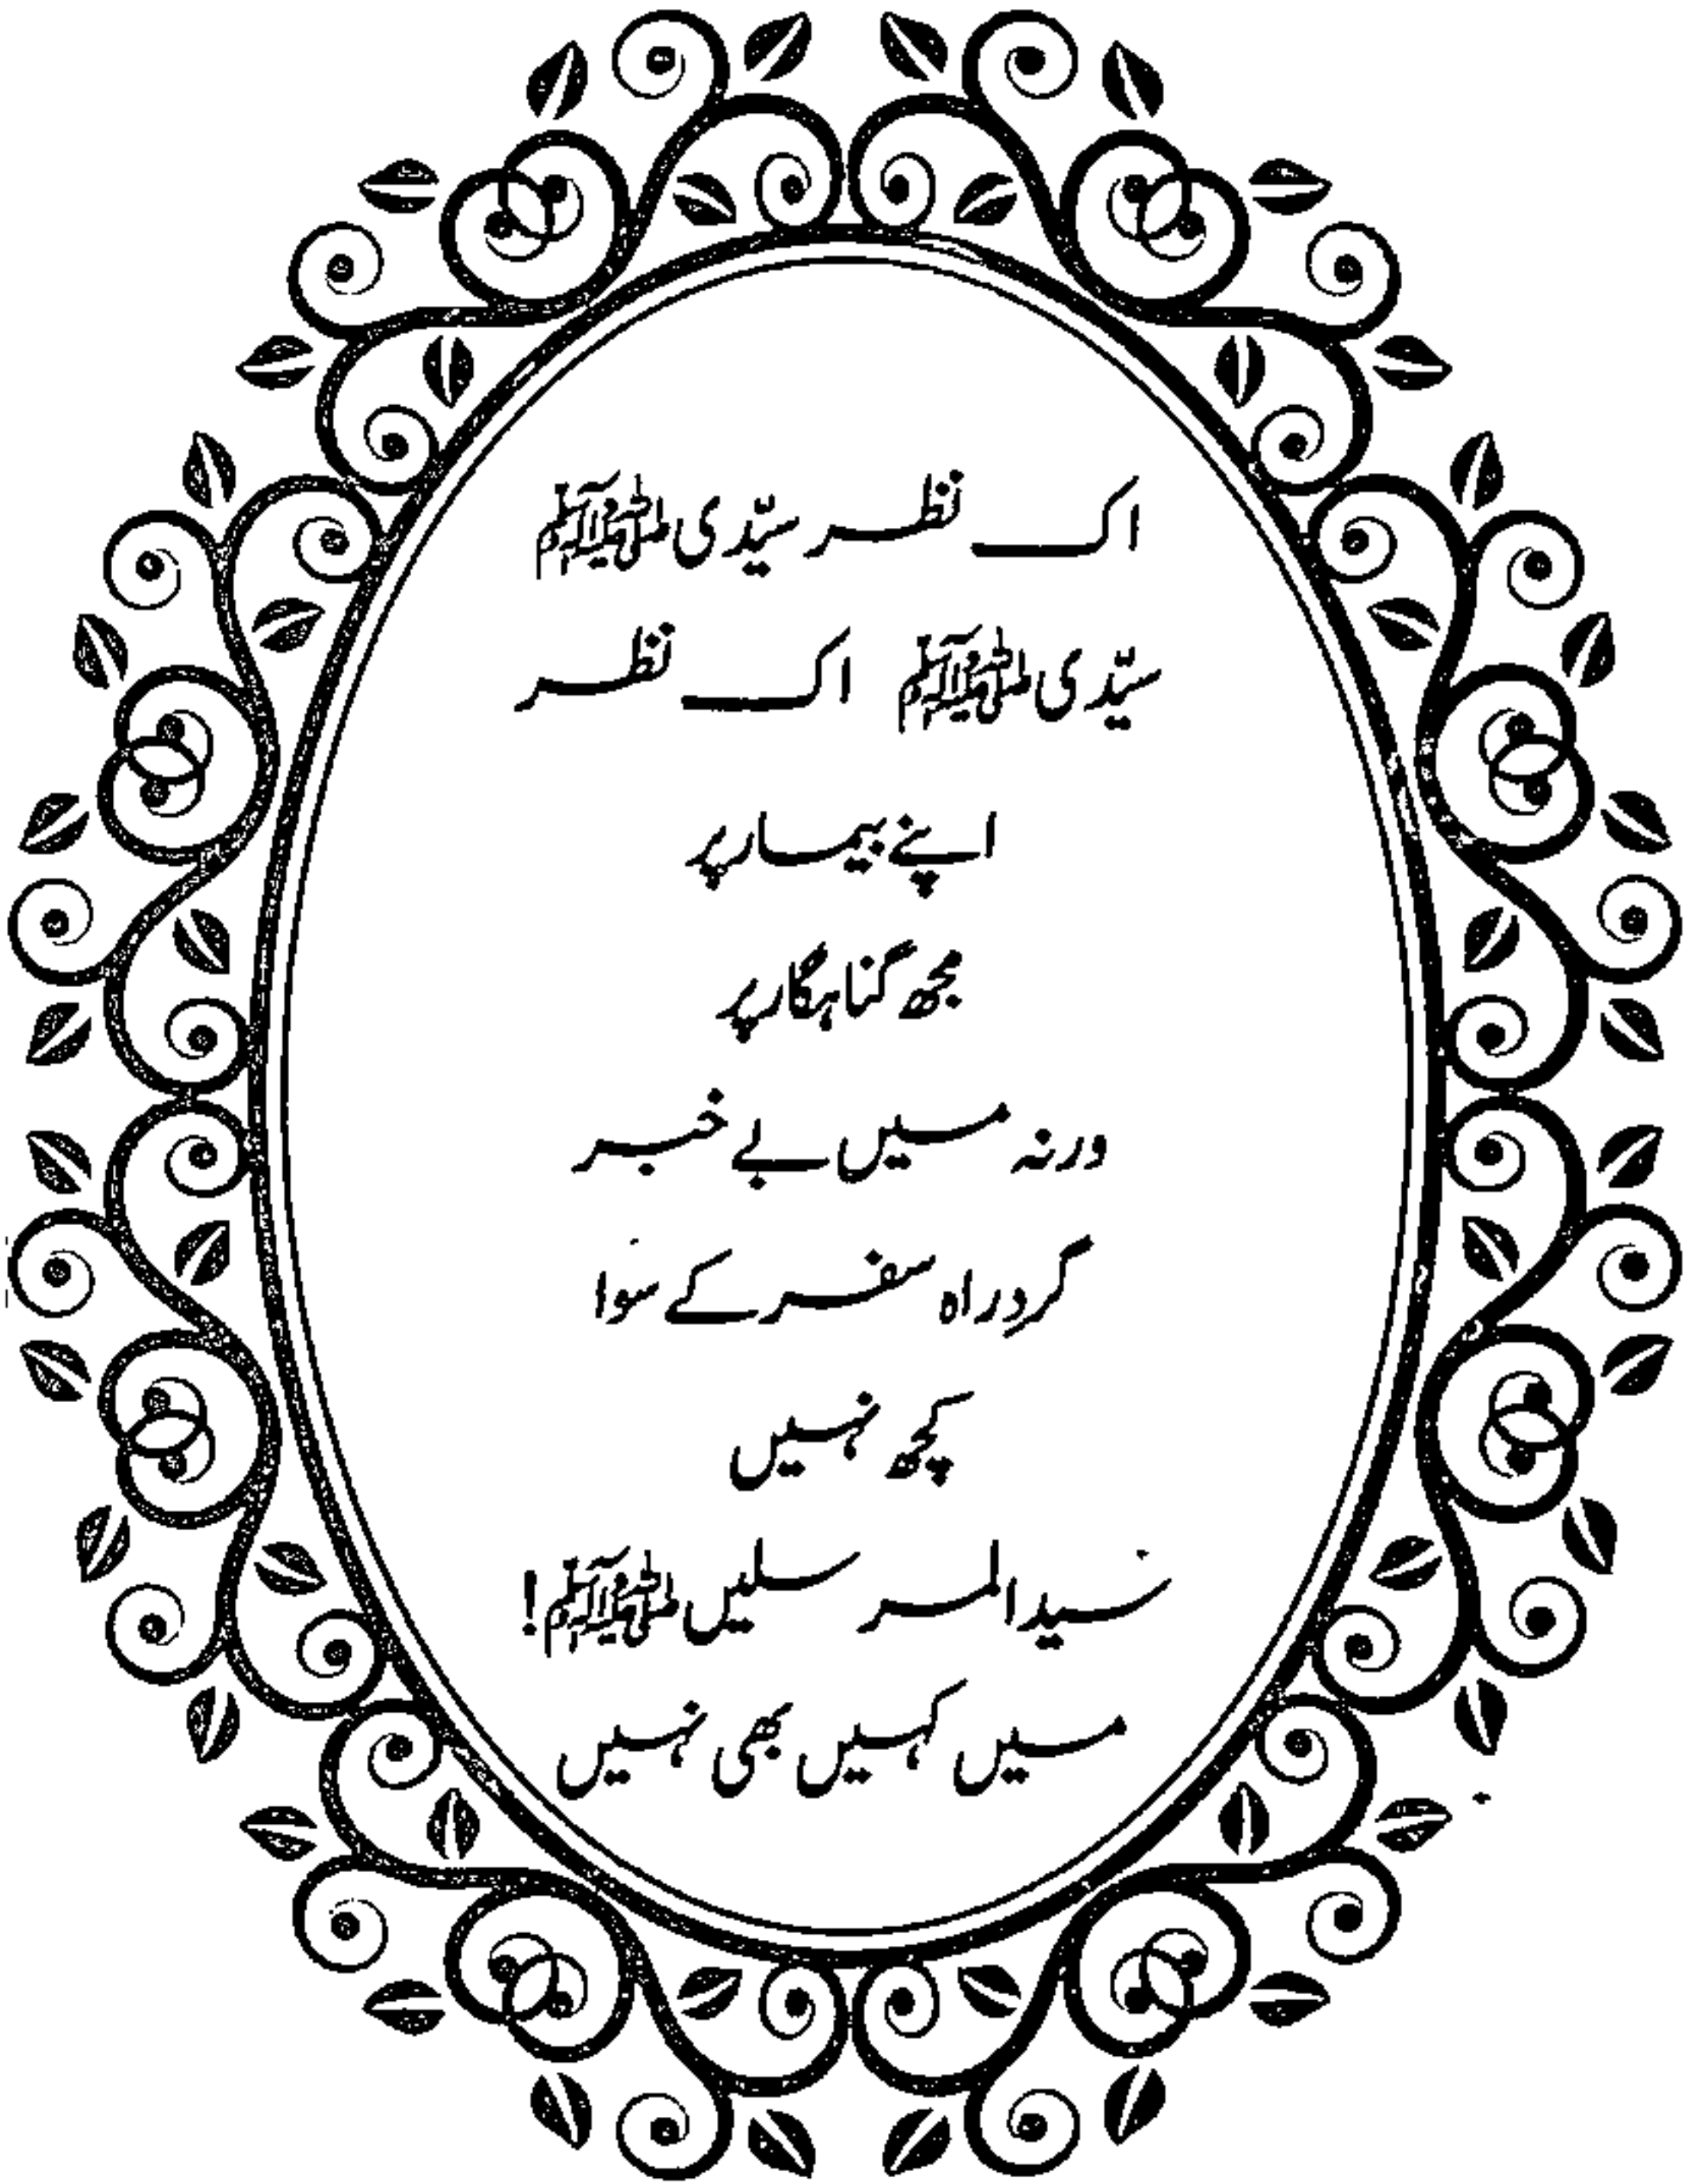 اک نظر سیّدی ﷺ
سیّدی ﷺ اک نظر
اپنے بیمار پر
مجھ گناہگار پر
ورنہ میں بے خبر
گردِ راہ سفر کے سوا
کچھ نہیں
سید المرسلیں ﷺ!
میں کہیں بھی نہیں